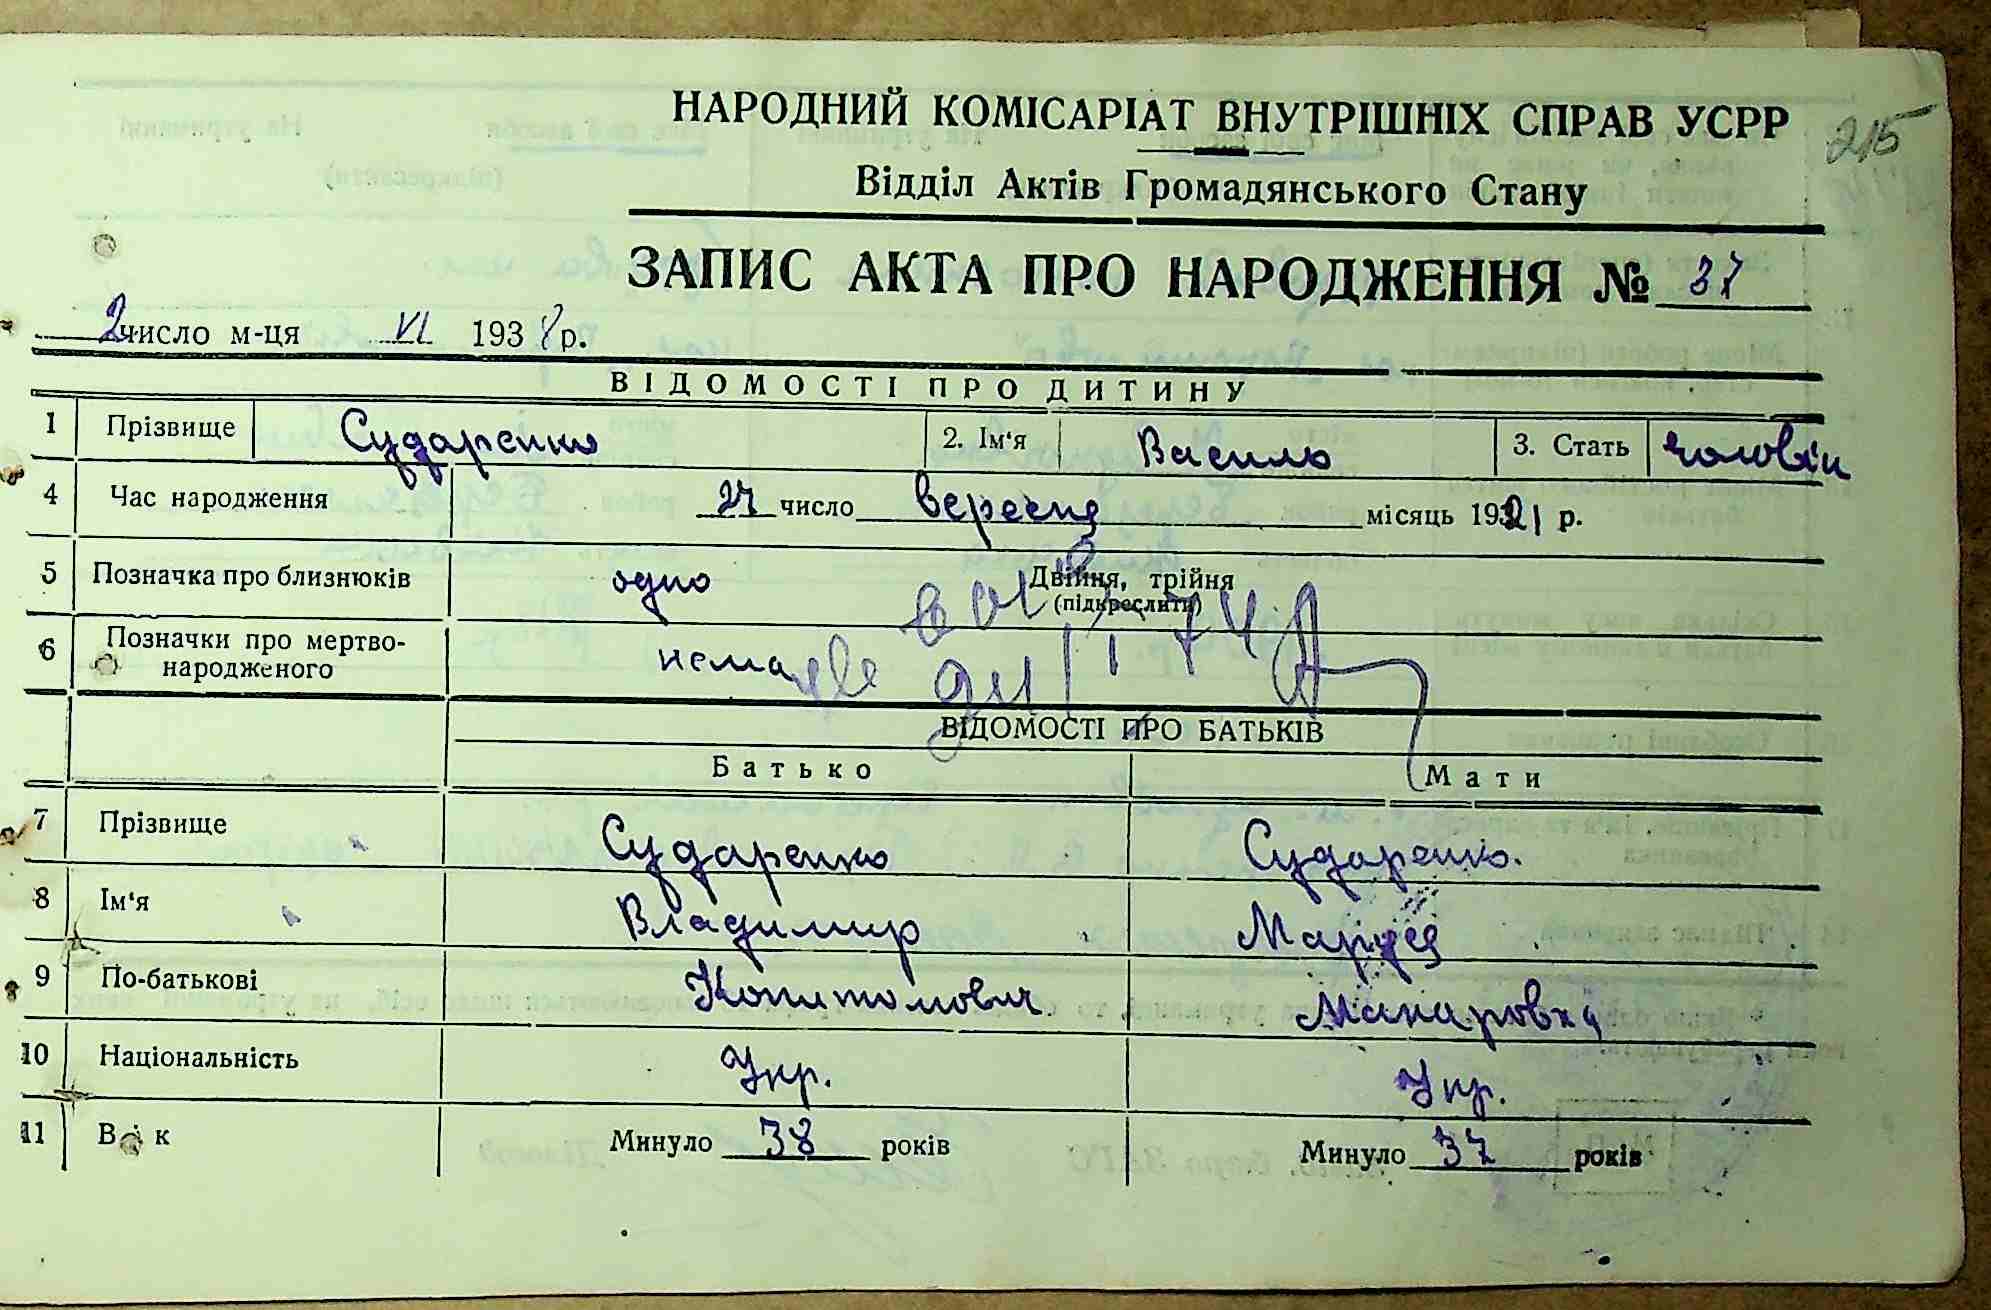 НАРОДНИЙ КОМІСАРІАТ ВНУТРІШНІХ СПРАВ УСРР
215
Відділ Актів Громадянського Стану
ЗАПИС АКТА ПРО НАРОДЖЕННЯ № 37
2 число м-ця VI 1938 р.
ВІДОМОСТІ ПРО ДИТИНУ
1 Прізвище Сударенко 2. Ім'я Василь 3. Стать чоловік
4 Час народження 27 число вересня місяць 1921 р.
5 Позначка про близнюків одно Двійня, трійня
(підкреслити)
6 Позначки про мертво-
народженого нема
ВІДОМОСТІ ПРО БАТЬКІВ
Батько Мати
7 Прізвище Сударенко Сударенко.
8 Ім'я Владимир Маруся
9 По-батькові Копитонович Макаровна
10 Національність Укр. Укр.
11 Вік Минуло 38 років Минуло 37 років